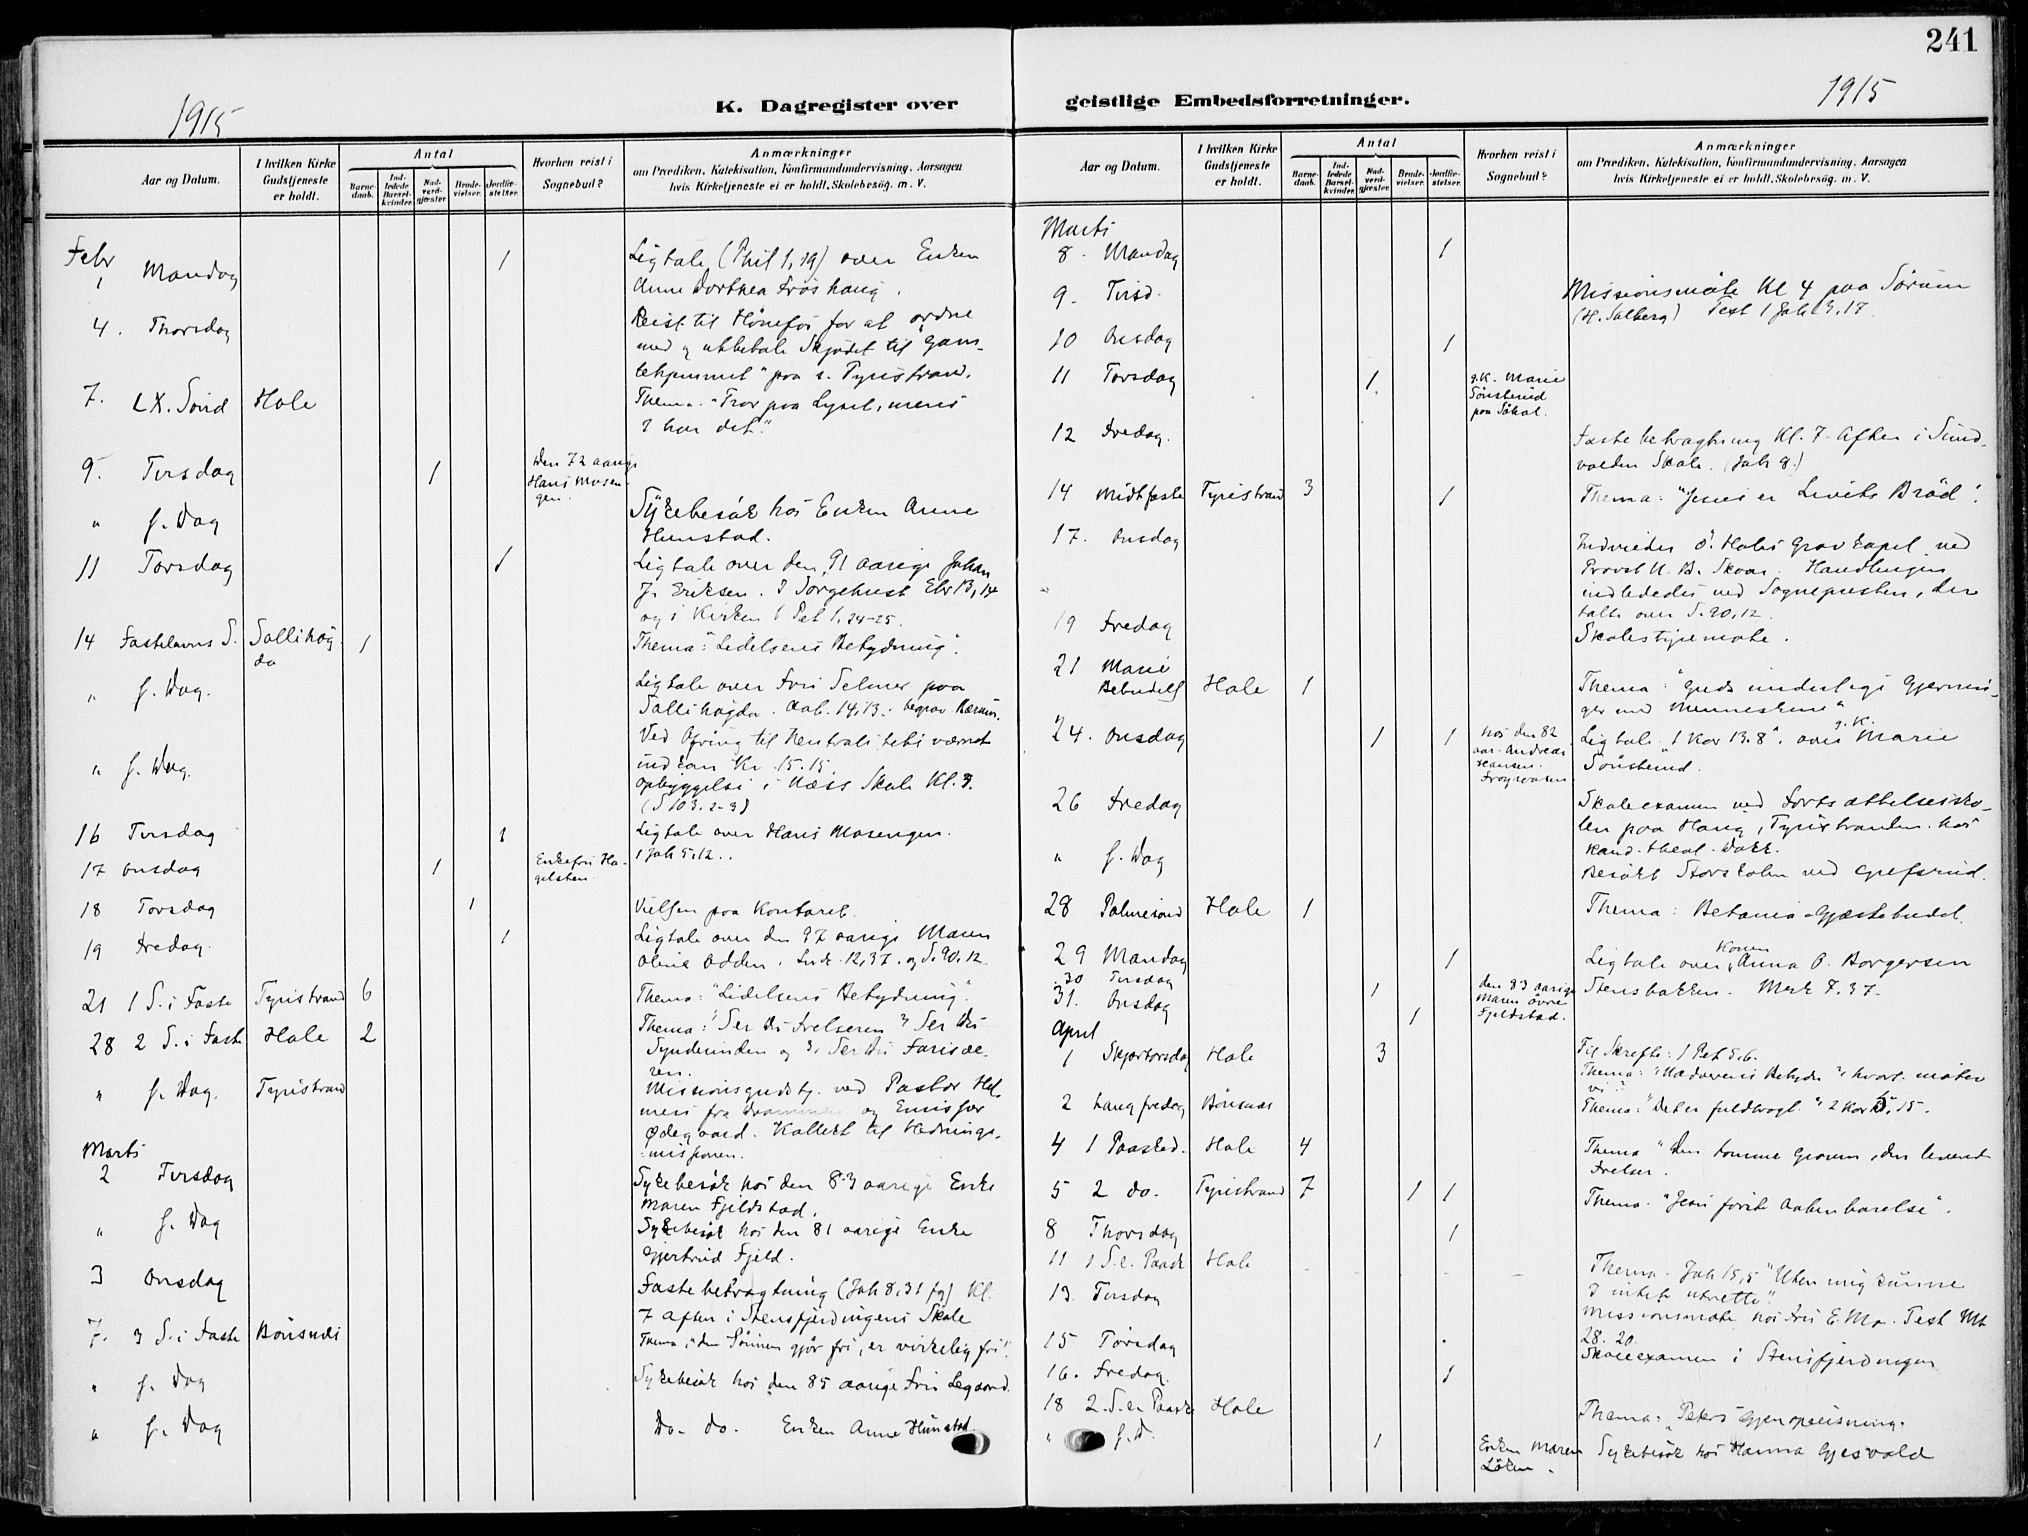 241
1915
1915
K. Dagregister over
geistlige Embedsforretninger.
Aar og Datum.
I hvilken Kirke Gudstjeneste er holdt.
Antal
Barne-daab.
Ind-ledede Barsel-kvinder.
Nad-verd-gjæster.
Brude-vielser.
Jordfæ-stelser.
Hvorhen reist i Sognebud?
Anmærkninger
om Prædiken, Katekisation, Konfirmandundervisning, Aarsagen
hvis Kirketjeneste ei er holdt, Skolebesøg. m. V.
Febr
1 Mandag 1 Ligtale (Phil 1,19) over Enken
Anne Dorthea Frøshaug.
4. Thorsdag Reist til Hønefos for at ordne
med og utbetale Skjødet til Gam-
lehjemmet" paa Tyristrand.
7. LX. Sønd Hole Thema. "Tror paa Lyset, mens
I har det."
9. Tirsdag 1 Den 72 aarige
Hans Mosen-
gen.
" s. Dag Sykebesøk hos Enken Anne
Hunstad.
11 Torsdag 1 Ligtale over den 91 aarige Johan
J. Eriksen. I Sørgehuset Ebr 13,14
og i Kirken 1 Pet 1,24-25.
14 Fastelavns S. Sollihøg-
da 1 Thema: "Lidelsens Betydning".
" s. Dag. Ligtale over Fru Selmer paa
Sollihøgda. Aab. 14,13. begrav Bærum.
Ved Ofring til Neutralitetsværnet
indkom Kr. 15.15.
" s. Dag. Opbyggelse i Næss Skole Kl. 3.
(S 103.2-3)
16 Tirsdag 1 Ligtale over Hans Mosengen.
1 Joh 5.12..
17 Onsdag 1 Enkefru Ha-
gelsten.
18 Torsdag 1 Vielsen paa Kontoret.
19 Fredag. 1 Ligtale over den 97 aarige Maren
Oline Odden. Luk. 12,37. og S. 90.12.
21 1 S. i Faste Tyristrand 6 Thema: "Lidelsens Betydning".
28 2 S. i Faste Hole 2 Thema: 1 Ser du Frelseren 2 Ser du
Synderinden og 3, Ser du Farisæe-
ren.
" s. Dag. Tyristrand Missionsgudstj. ved Pastor Hel-
mers fra Drammen og Emissær
Ødegaard. Kollekt til Hednings-
missionen.
Marts
2 Tirsdag Sykebesøk hos den 83 aarige Enke
Maren Fjeldstad.
" s. Dag Sykebesøk hos den 81 aarige Enke
Gjertrud Fjeld.
3 Onsdag Fastebetragtning (Joh 8,31 fg) Kl.
7 aften i Stensfjerdingens Skole
7. 3 S. i Faste Bønsnes Thema: "den Sønnen gjør fri, er virkelig fri".
" s. Dag Sykebesøk hos den 85 aarige Fru Legaard.
" s. Dag Do. do. Enken Anne Hunstad.
Aar og Datum.
I hvilken Kirke Gudstjeneste er holdt.
Antal
Barne-daab.
Ind-ledede Barsel-kvinder.
Nad-verd-gjæster.
Brude-vielser.
Jordfæ-stelser.
Hvorhen reist i Sognebud?
Anmærkninger
om Prædiken, Katekisation, Konfirmandundervisning, Aarsagen
hvis Kirketjeneste ei er holdt, Skolebesøg. m. V.
Marts
8. Mandag 1
9. Tirsd. Missionsmøte Kl 4 paa Sørum
(H. Solberg) Text 1 Joh
10 Onsdag 1
11 Torsdag 1. g.K. Marie
Sønsterud
paa Søhol.
12 Fredag. Fastebetragtning Kl. 7 Aften i Sund-
volden Skole. (Joh 8.)
14 Midtfaste Tyristrand 3 1 Thema: "Jesus er Livets Brød".
17. Onsdag Indviedes Holes Gravkapel ved
Provst Skaar. Handlingen
indlededes ved Sognepresten, der
talte over S. 90,12.
19 Fredag Skolestyremøte.
21 Marie
Bebudelse Hole 1 Thema: "Guds underlige Gjernin-
ger med Menneskene"
24. Onsdag 1 1 hos den 82
aar. Andreas
Hansen
Frøgnaasen Ligtale "1 Kor 13.8". over g.K. Marie
Sønsterud.
26 Fredag Skoleexamen ved Fortsættelsessko-
len paa Haug, Tyristranden hos
kand. theol.
" s. Dag Besøkt Storskolen ved Gjefsrud.
28 Palmesønd Hole 1 Thema: Betania-Gjæstebudet.
29 Mandag 1 Ligtale over Konen Anna O. Borgersen
Stensbakken. Mrk 7.37.
30 Tirsdag 1 den 83 aarige
Maren øvre
Fjeldstad.
31. Onsdag 1
April
1 Skjærtorsdag Hole 3 Til Skrifte: 1 Pet 5,6.
Thema: "Nadverens Betydn", hvort. møter
vi?
2 Langfredag Bønsnæs Thema: "Det er fuldbragt." 2 Kor 5, 15.
4 1 Paasked. Hole 4 Thema "Den tomme Graven, den levende
Frelser.
5 2 do. Tyristrand 7 1 1 Thema. "Jesu første Aabenbarelse".
8 Thorsdag 1
11 1 S. e. Paask Hole Thema. Joh 15,5 "Uten mig kunne
I intet utrette".
13. Tirsdag Missionsmøte hos Fru E. Mo. Text Mt
28.20.
15 Torsdag Skoleexamen i Stensfjerdingen
16. Fredag. 1
18 2. S. e. Paask Hole Thema: "Peters Gjenopreisning.
" s. D. 1 Enken Maren
Løken. Sykebesøk hos Hanna Gjesvold